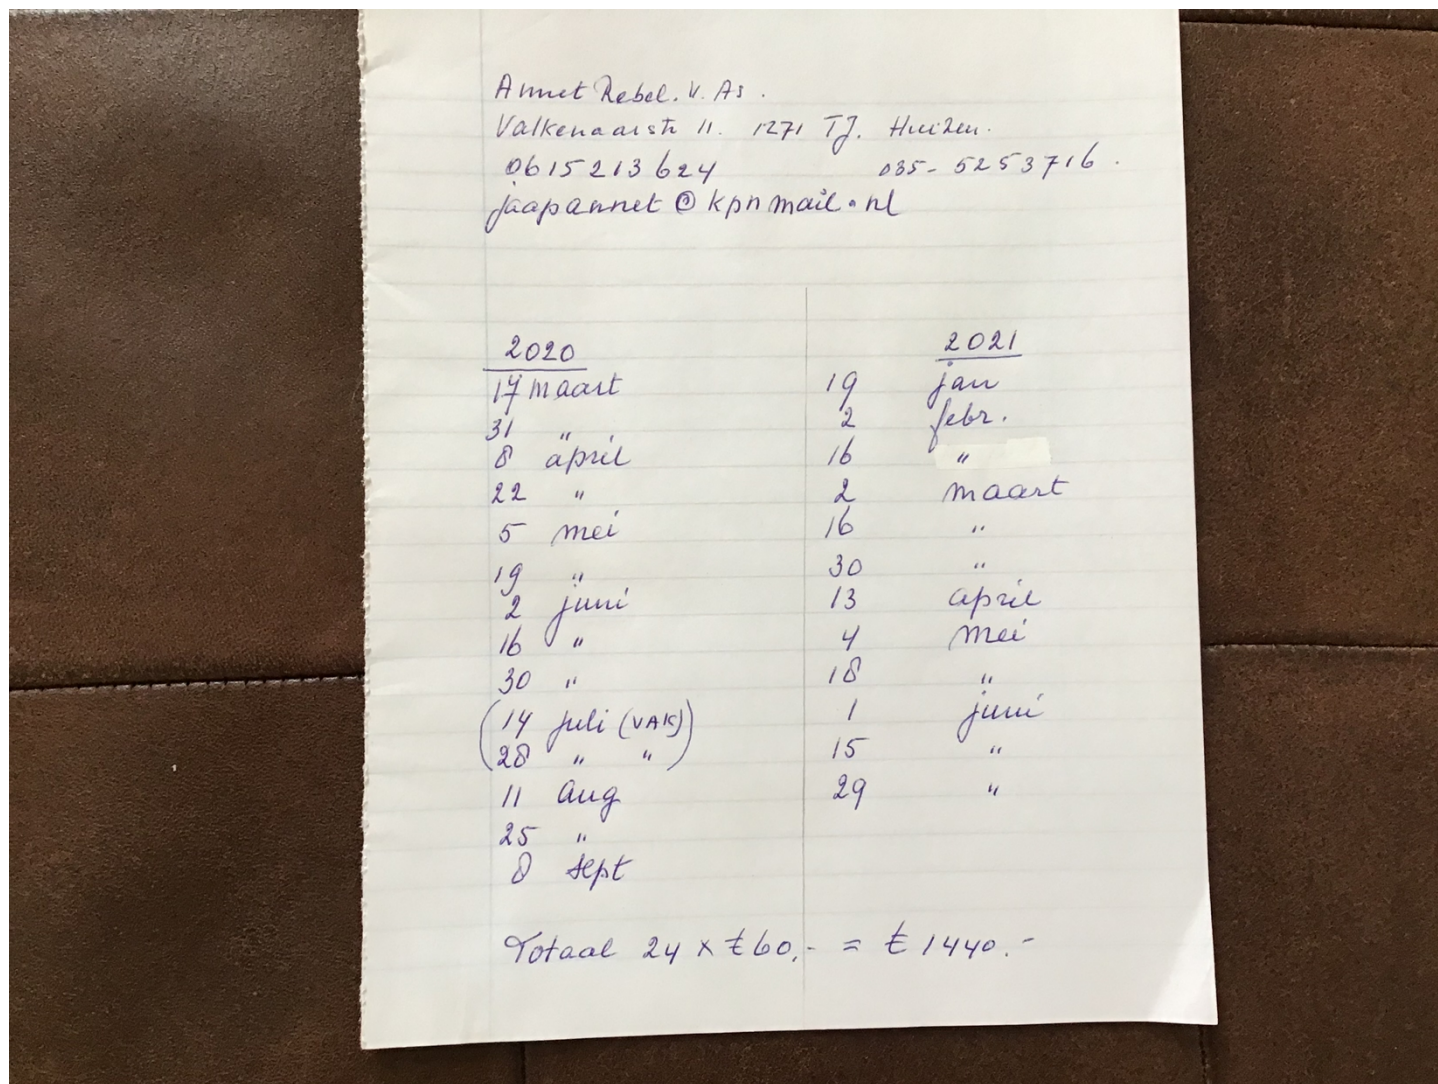 Annet Rebel. v. As.
Valkenaarstr 11. 1271 TJ. Huizen.
0615213624 035-5253716.
jaapannet@kpnmail.nl
2020
17 maart
31 "
8 april
22 "
5 mei
19 "
2 juni
16 "
30 "
(14 juli (VAK)
28 " ")
11 Aug
25 "
8 sept
2021
19 jan
2 febr.
16 "
2 maart
16 "
30 "
13 april
4 mei
18 "
1 juni
15 "
29 "
Totaal 24 x €60,- = €1440.-